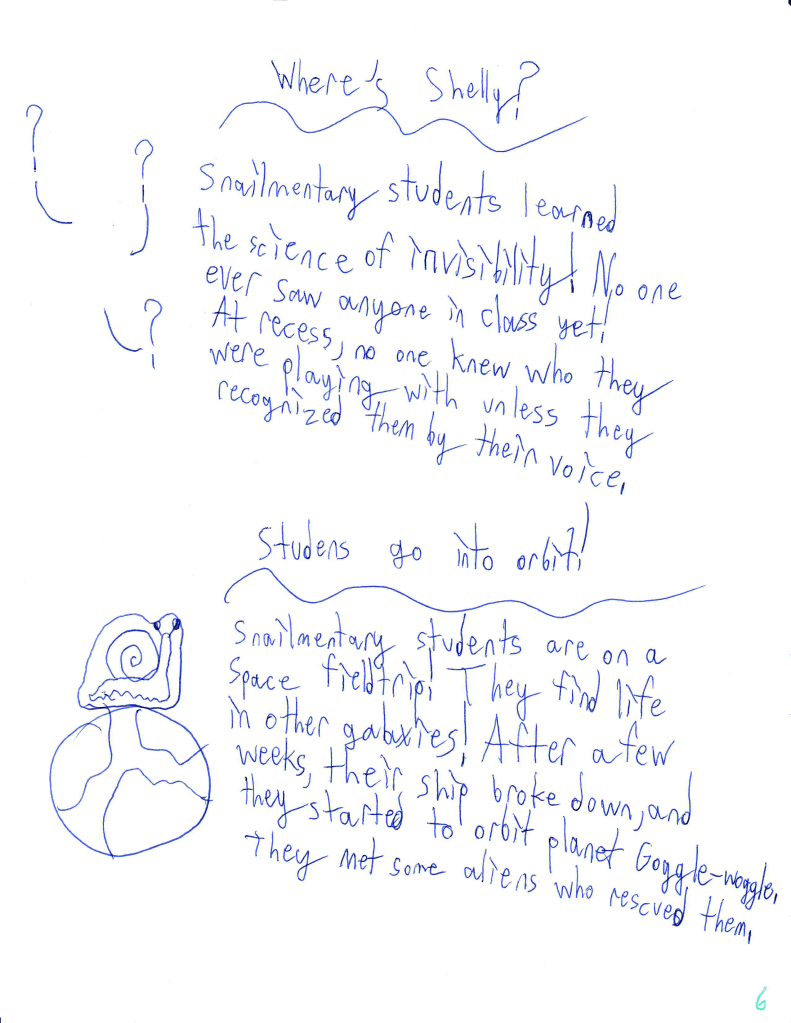 Where's Shelly?
?
?
?
Snailmentary students learned
the science of invisibility! No one
ever saw anyone in class yet!
At recess, no one knew who they
were playing with unless they
recognized them by their voice.
Studens go into orbit!
Snailmentary students are on a
space fieldtrip! They find life
in other galaxies! After a few
weeks, their ship broke down, and
they started to orbit planet Goggle-woggle.
They met some aliens who rescued them.
6